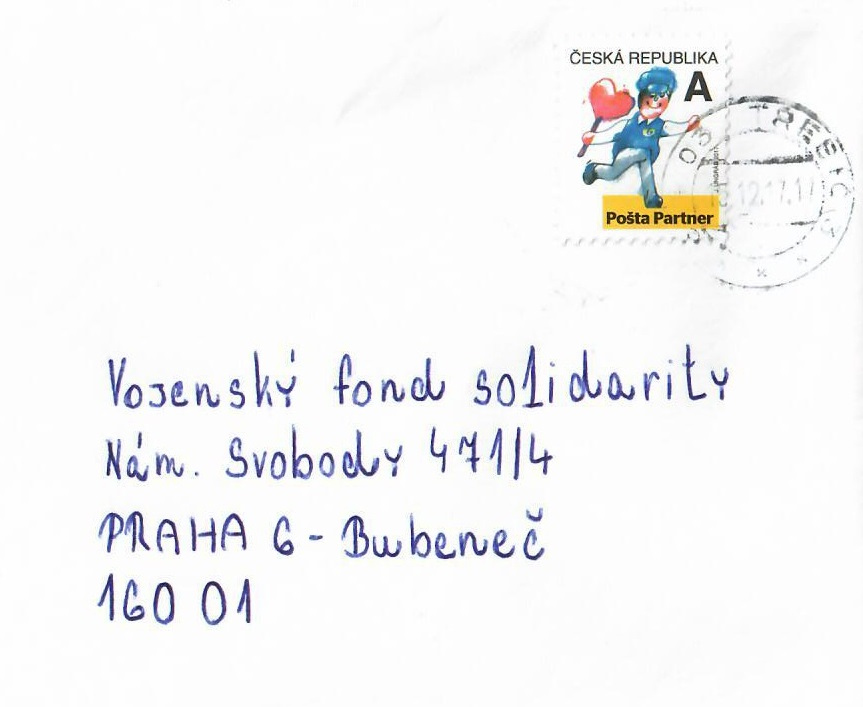 ČESKÁ REPUBLIKA
A
Pošta Partner
TŘEBÍČ 3
12.17.17
Vojenský fond solidarity
Nám. Svobody 471/4
PRAHA 6 - Bubeneč
160 01